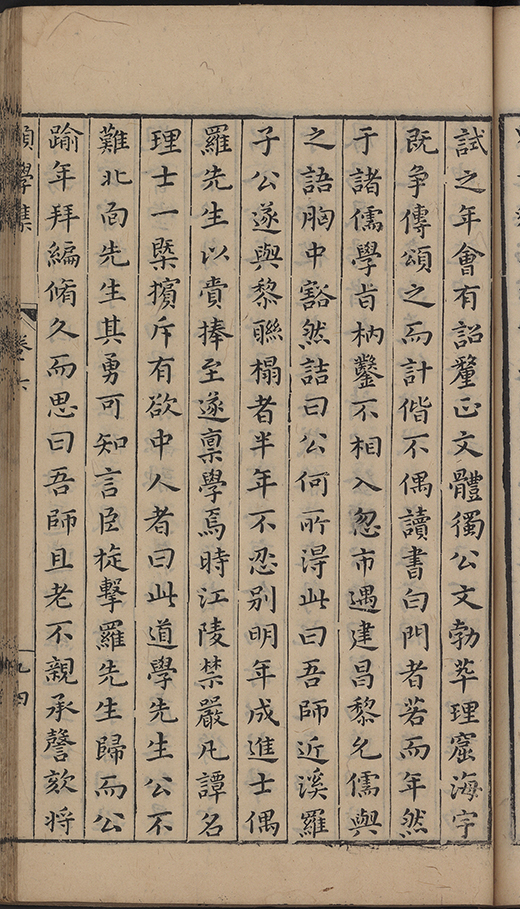 試之年會有詔釐正文體獨公文勃萃理窟海宇
既争傳頌之而計偕不偶讀書白門者若而年然
于諸儒學㫖枘鑿不相入忽市遇建昌黎允儒與
之語胸中豁然詰曰公何所得此曰吾師近溪羅
子公遂與黎聯榻者半年不忍别明年成進士偶
羅先生以賫捧至遂禀學焉時江陵禁嚴凡譚名
理士一槩擯斥有欲中人者曰此道學先生公不
難北面先生其勇可知言臣旋擊羅先生歸而公
踰年拜編脩久而思曰吾師且老不親承謦欬將
學集
卷六
九四